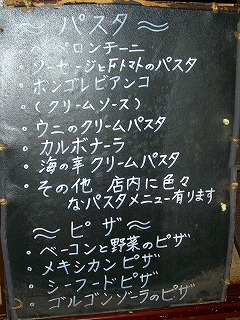 ～ パスタ ～
・ペペロンチーニ
・ソーセージとFトマトのパスタ
・ボンゴレビアンコ
・(クリームソース)
・ウニのクリームパスタ
・カルボナーラ
・海の幸クリームパスタ
・その他 店内に色々
なパスタメニュー有ります
～ ピザ ～
・ベーコンと野菜のピザ
・メキシカンピザ
・シーフードピザ
・ゴルゴンゾーラのピザ